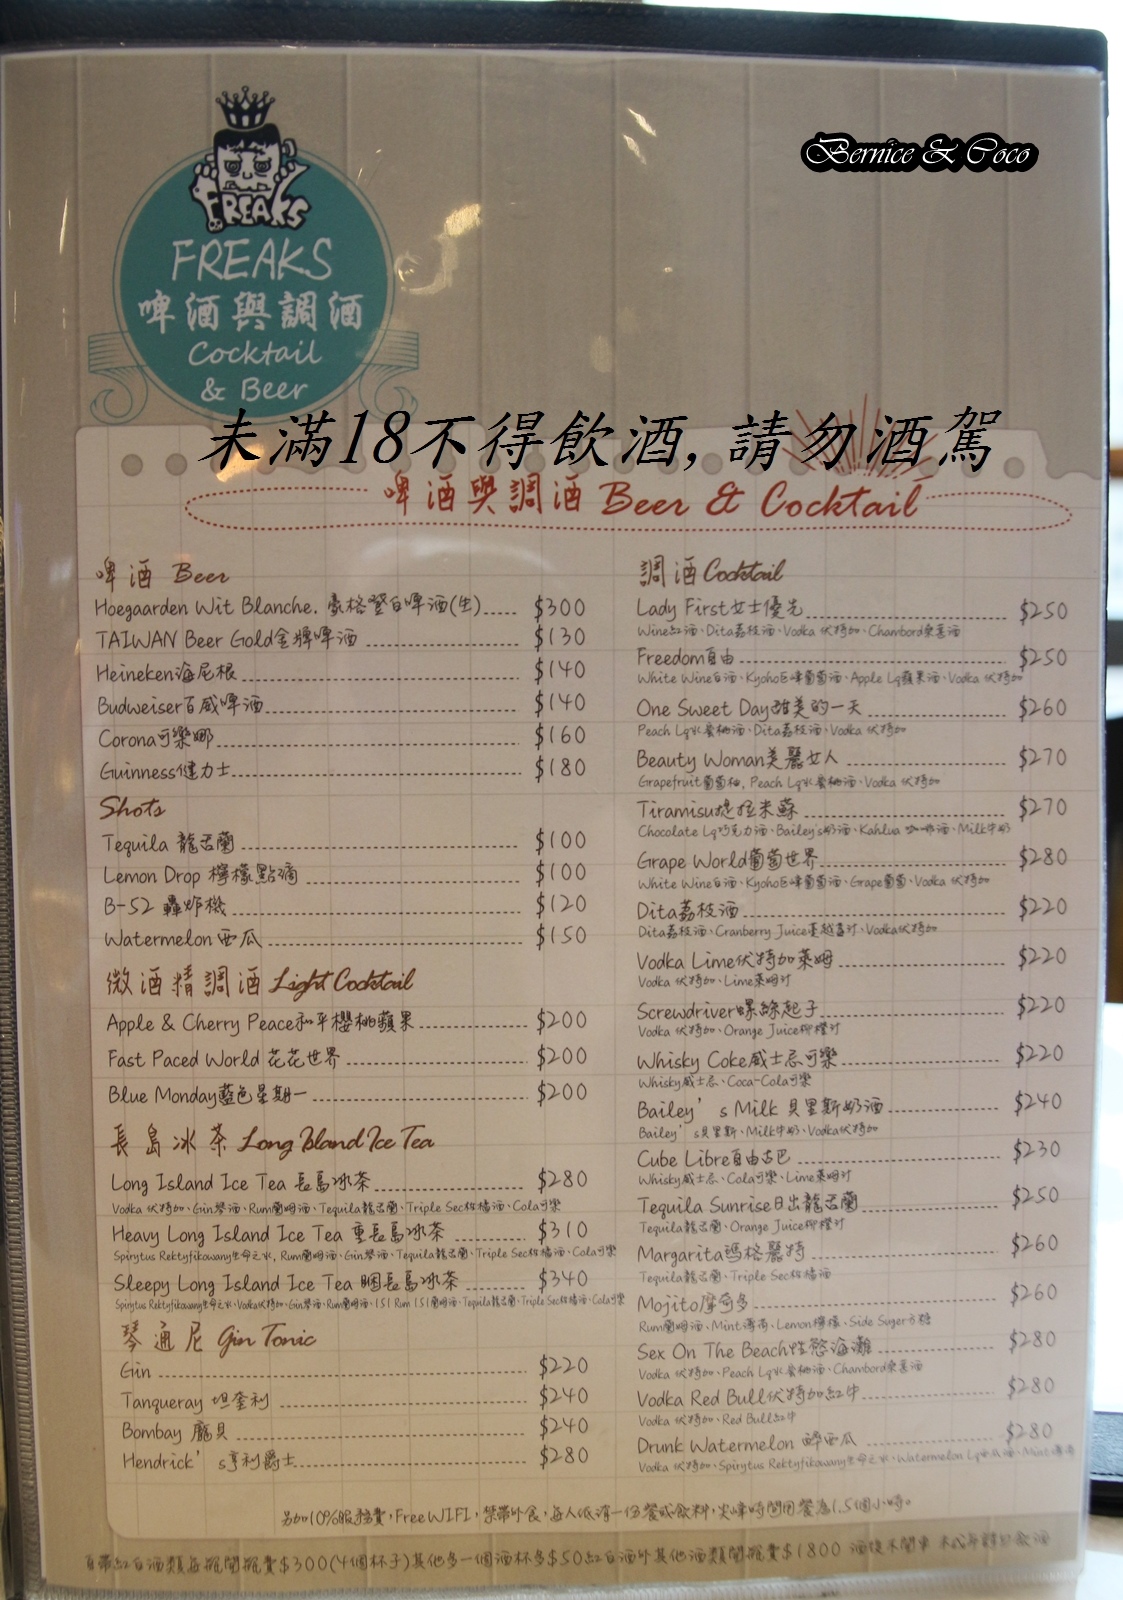 Bernice & Coco
FREAKS
FREAKS
啤酒與調酒
Cocktail
& Beer
未滿18不得飲酒,請勿酒駕
啤酒與調酒 Beer & Cocktail
啤酒 Beer
Hoegaarden Wit Blanche. 豪格登白啤酒(生)..... $300
TAIWAN Beer Gold金牌啤酒 $130
Heineken海尼根 $140
Budweiser百威啤酒 $140
Corona可樂娜 $160
Guinness健力士 $180
Shots
Tequila 龍舌蘭 $100
Lemon Drop 檸檬點滴 $100
B-52 轟炸機 $120
Watermelon 西瓜 $150
微酒精調酒 Light Cocktail
Apple & Cherry Peace和平櫻桃蘋果 $200
Fast Paced World 花花世界 $200
Blue Monday藍色星期一 $200
長島冰茶 Long Island Ice Tea
Long Island Ice Tea 長島冰茶 $280
Vodka 伏特加、Gin琴酒、Rum蘭姆酒、Tequila龍舌蘭、Triple Sec柑橘酒、Cola可樂
Heavy Long Island Ice Tea 重長島冰茶 $310
Spirytus Rektyfikowany生命之水, Rum蘭姆酒、Gin琴酒、Tequila龍舌蘭、Triple Sec柑橘酒、Cola可樂
Sleepy Long Island Ice Tea 睏長島冰茶 $340
Spirytus Rektyfikowany生命之水、Vodka伏特加、Gin琴酒、Rum蘭姆酒、151 Rum 151蘭姆酒、Tequila龍舌蘭、Triple Sec柑橘酒、Cola可樂
琴通尼 Gin Tonic
Gin $220
Tanqueray 坦奎利 $240
Bombay 龐貝 $240
Hendrick's亨利爵士 $280
調酒 Cocktail
Lady First女士優先 $250
Wine紅酒、Dita荔枝酒、Vodka 伏特加、Chambord桑葚酒
Freedom自由 $250
White Wine白酒、Kyoho巨峰葡萄酒、Apple Lq蘋果酒、Vodka 伏特加
One Sweet Day甜美的一天 $260
Peach Lq水蜜桃酒、Dita荔枝酒、Vodka 伏特加
Beauty Woman美麗女人 $270
Grapefruit葡萄柚, Peach Lq水蜜桃酒、Vodka 伏特加
Tiramisu提拉米蘇 $270
Chocolate Lq巧克力酒、Bailey's奶酒、Kahlua 咖啡酒、Milk牛奶
Grape World葡萄世界 $280
White Wine白酒、Kyoho巨峰葡萄酒、Grape葡萄、Vodka 伏特加
Dita荔枝酒 $220
Dita荔枝酒、Cranberry Juice蔓越莓汁、Vodka伏特加
Vodka Lime伏特加萊姆 $220
Vodka 伏特加、Lime萊姆汁
Screwdriver螺絲起子 $220
Vodka 伏特加、Orange Juice柳橙汁
Whisky Coke威士忌可樂 $220
Whisky威士忌、Coca-Cola可樂
Bailey's Milk 貝里斯奶酒 $240
Bailey's貝里斯、Milk牛奶、Vodka伏特加
Cube Libre自由古巴 $230
Whisky威士忌、Cola可樂、Lime萊姆汁
Tequila Sunrise日出龍舌蘭 $250
Tequila龍舌蘭、Orange Juice柳橙汁
Margarita瑪格麗特 $260
Tequila龍舌蘭、Triple Sec柑橘酒
Mojito摩奇多 $260
Rum蘭姆酒、Mint薄荷、Lemon檸檬、Side Suger方糖
Sex On The Beach性慾海灘 $280
Vodka 伏特加、Peach Lq水蜜桃酒、Chambord桑葚酒
Vodka Red Bull伏特加紅牛 $280
Vodka 伏特加、Red Bull紅牛
Drunk Watermelon 醉西瓜 $280
Vodka 伏特加、Spirytus Rektyfikowany生命之水、Watermelon Lq西瓜酒、Mint薄荷
另加10%服務費,Free WIFI,禁帶外食,每人低消一份餐或飲料,尖峰時間用餐為1.5個小時。
自帶紅白酒類每瓶開瓶費$300(4個杯子)其他多一個酒杯多$50紅白酒外其他酒類開瓶費$1800 酒後不開車 未成年請勿飲酒